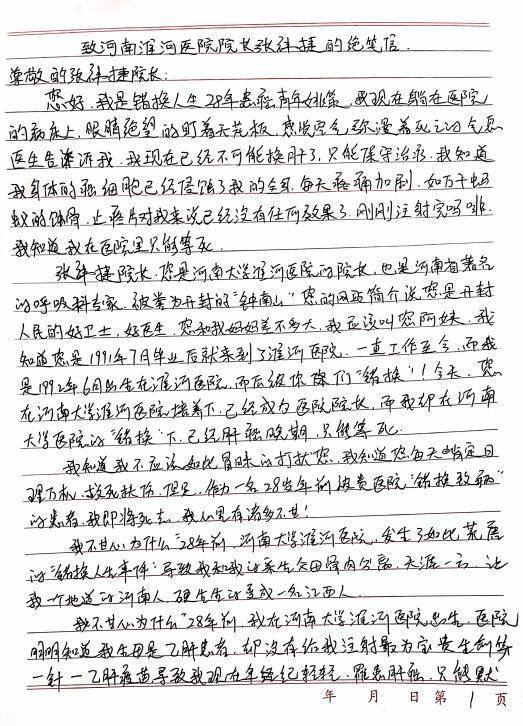 致河南淮河医院院长张祎捷的绝笔信.
尊敬的张祎捷院长:
您好,我是错换人生28年患癌青年姚策,我现在躺在医院
的病床上,眼睛绝望的盯着天花板,感觉空气弥漫着死亡的气息
医生告诉我,我现在已经不可能换肝了,只能保守治疗,我知道
我身体的癌细胞已经侵蚀了我的全身,每天疼痛加剧,如万千蚂
蚁的蚀骨,止疼片对我来说已经没有任何效果了,刚刚注射完吗啡,
我知道我在医院里只能等死.
张祎捷院长,您是河南大学淮河医院的院长,也是河南省著名
的呼吸科专家,被誉为开封的"钟南山"您的网站简介说您是开封
人民的好卫士,好医生,您和我妈妈差不多大,我应该叫您阿姨,我
知道您是1991年7月毕业后就来到了淮河医院,一直工作至今,而我
是1992年6月出生在淮河医院,而后被你院们"错换"!今天,您
在河南大学淮河医院培养下,已经成为医院院长,而我却在河南
大学医院的"错换"下,已经肝癌晚期,只能等死.
我知道我不应该如此冒昧的打扰您,我知道您每天肯定日
理万机,救死扶伤,但是,作为一名28岁年前被贵医院"错换致癌"
的患者,我即将死去,我心里有诸多不甘!
我不甘心,为什么"28年前,河南大学淮河医院,发生了如此荒唐
的"错换人生事件"导致我和我的亲生父母骨肉分离,天涯一方,让
我一个地道的河南人,硬生生的变成一名江西人.
我不甘心为什么"28年前,我在河南大学淮河医院出生,医院
明明知道我生母是乙肝患者,却没有给我注射最为宝贵生命第
一针一乙肝疫苗导致我现在年轻纪轻轻,罹患肝癌,只能默
年 月 日 第 1 页